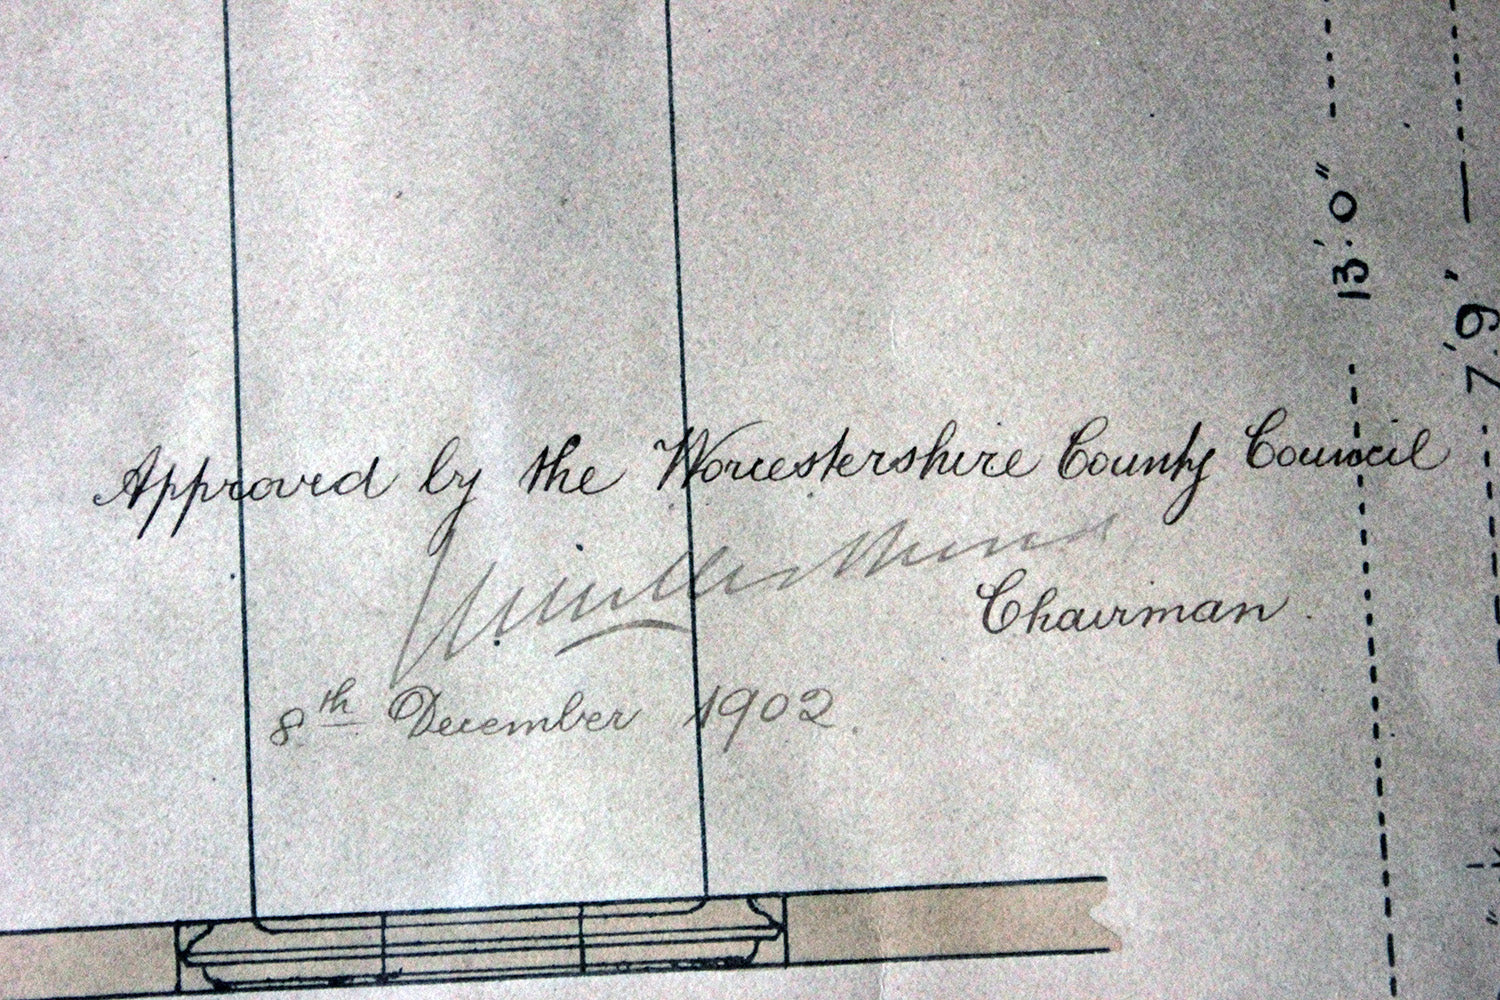 Approved by the Worcestershire County Council
Chairman.
8th December 1902.
13'.0"
7'.9"